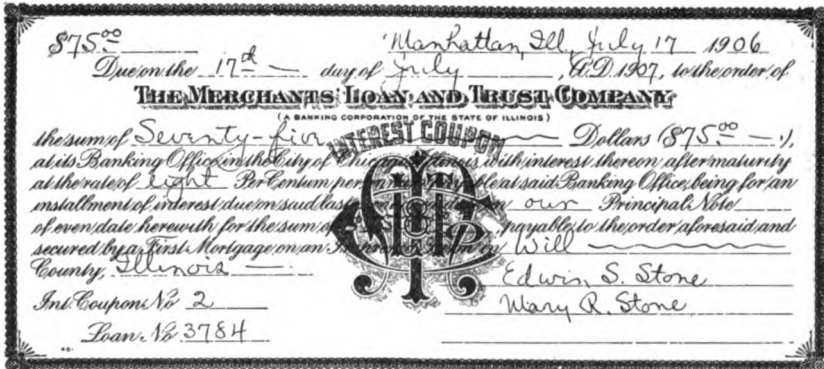 $75.00 Manhattan, Ill., July 17 1906
Due on the 17th day of July, A.D. 1907, to the order of
THE MERCHANTS LOAN AND TRUST COMPANY
(A BANKING CORPORATION OF THE STATE OF ILLINOIS)
the sum of Seventy-five Dollars ($75.00),
INTEREST COUPON
at its Banking Office, in the City of Chicago, Illinois with interest thereon after maturity
at the rate of eight Per Centum per payable at said Banking Office, being for an
installment of interest due on said last on our Principal Note
of even date herewith for the sum of payable to the order aforesaid and
secured by a First Mortgage on an in Will
County, Illinois
Edwin S. Stone
Int. Coupon No 2
Mary R. Stone
Loan No 3784